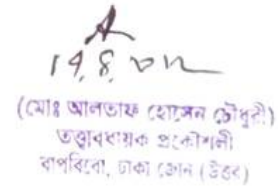 (মোঃ আলতাফ হোসেন চৌধুরী)
তত্ত্বাবধায়ক প্রকৌশলী
বাপবিবো, ঢাকা জোন (উত্তর)